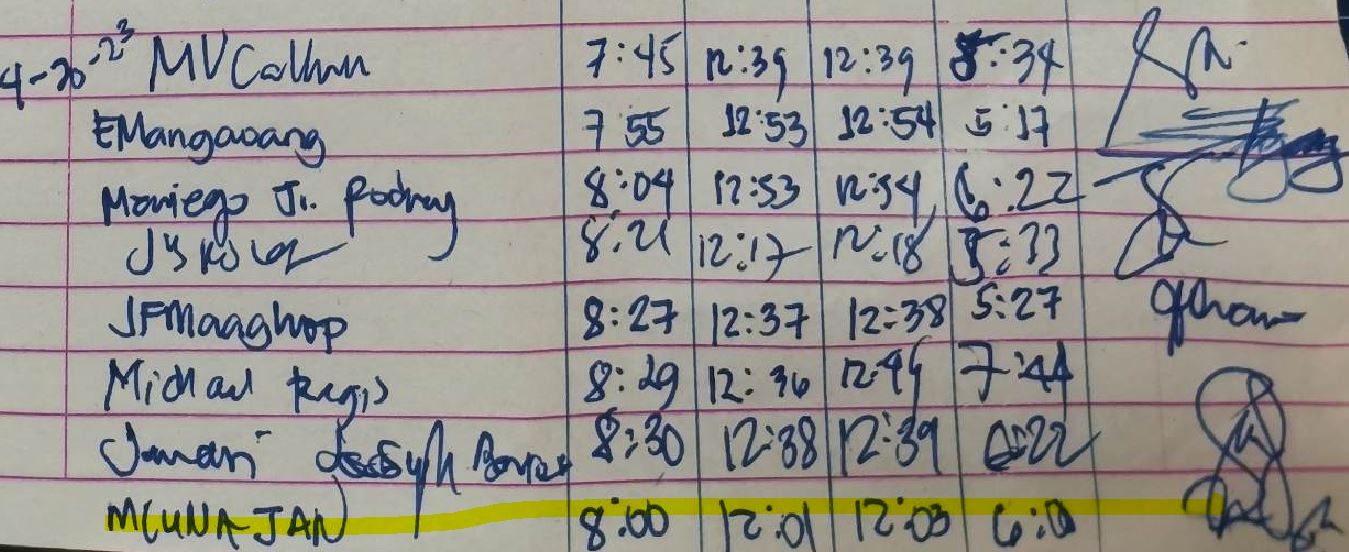 4-20-23 MVCalhun 7:45 12:39 12:39 5:34
EMangaoang 7 55 12:53 12:54 5:17
Moniego Jr. Rodney 8:04 12:53 12:54 6:22
8:21 12:17 12:18 5:33
JFMaaghop 8:27 12:37 12:38 5:27
Michael Regis 8:29 12:36 12:45 7:44
Joseph 8:30 12:38 12:39 6:22
MCUNA JAN 8:00 12:01 12:03